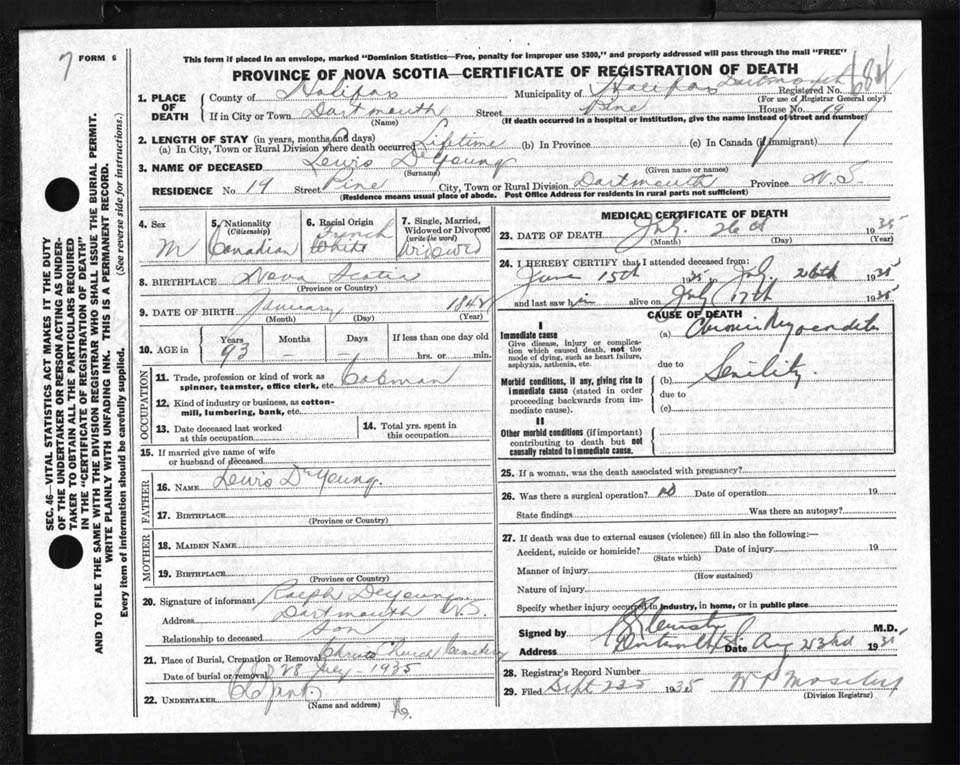 7 FORM 6
This form if placed in an envelope, marked "Dominion Statistics—Free, penalty for improper use $300," and properly addressed will pass through the mail "FREE"
PROVINCE OF NOVA SCOTIA—CERTIFICATE OF REGISTRATION OF DEATH
684
1. PLACE OF DEATH
County of Halifax Municipality of Halifax Dartmouth Registered No.
(For use of Registrar General only)
If in City or Town Dartmouth Street Pine House No. 19
(Name) (If death occurred in a hospital or institution, give the name instead of street and number)
2. LENGTH OF STAY (in years, months and days)
(a) In City, Town or Rural Division where death occurred Lifetime (b) In Province (c) In Canada (if immigrant)
3. NAME OF DECEASED Lewis DeYoung
(Surname) (Given name or names)
RESIDENCE No. 19 Street Pine City, Town or Rural Division Dartmouth Province N.S
(Residence means usual place of abode. Post Office Address for residents in rural parts not sufficient)
4. Sex M
5. Nationality (Citizenship) Canadian
6. Racial Origin French White
7. Single, Married, Widowed or Divorced (write the word) Widower
8. BIRTHPLACE Nova Scotia
(Province or Country)
9. DATE OF BIRTH January 1842
(Month) (Day) (Year)
10. AGE in Years Months Days If less than one day old
93 – – hrs. or min.
OCCUPATION
11. Trade, profession or kind of work as spinner, teamster, office clerk, etc. Cabman
12. Kind of industry or business, as cotton-mill, lumbering, bank, etc.
13. Date deceased last worked at this occupation
14. Total yrs. spent in this occupation
15. If married give name of wife or husband of deceased
FATHER
16. NAME Lewis DeYoung.
17. BIRTHPLACE
(Province or Country)
MOTHER
18. MAIDEN NAME
19. BIRTHPLACE
(Province or Country)
20. Signature of informant Ralph DeYoung
Address Dartmouth N.S.
Relationship to deceased Son
21. Place of Burial, Cremation or Removal Christ Church Cemetery
Date of burial or removal 28 July - 1935
22. UNDERTAKER
(Name and address)
MEDICAL CERTIFICATE OF DEATH
23. DATE OF DEATH July 26th 1935
(Month) (Day) (Year)
24. I HEREBY CERTIFY that I attended deceased from:
June 15th 1935 July 26th 1935
and last saw him alive on July 17th 1935
CAUSE OF DEATH
I
Immediate cause
Give disease, injury or complication which caused death, not the mode of dying, such as heart failure, asphyxia, asthenia, etc.
(a) Chronic Myocarditis
due to
Morbid conditions, if any, giving rise to immediate cause (stated in order proceeding backwards from immediate cause).
(b) Senility
due to
(c)
II
Other morbid conditions (if important) contributing to death but not causally related to immediate cause.
25. If a woman, was the death associated with pregnancy?
26. Was there a surgical operation? no Date of operation 19
State findings Was there an autopsy?
27. If death was due to external causes (violence) fill in also the following:—
Accident, suicide or homicide? Date of injury 19
(State which)
Manner of injury
(How sustained)
Nature of injury
Specify whether injury occurred in industry, in home, or in public place
Signed by M.D.
Address Dartmouth N.S. Date Aug 23rd 1935
28. Registrar's Record Number
29. Filed Sept 1935
(Division Registrar)
SEC. 46—VITAL STATISTICS ACT MAKES IT THE DUTY
OF THE UNDERTAKER OR PERSON ACTING AS UNDER-
TAKER TO OBTAIN ALL THE PARTICULARS REQUIRED
IN THE "CERTIFICATE OF REGISTRATION OF DEATH"
AND TO FILE THE SAME WITH THE DIVISION REGISTRAR WHO SHALL ISSUE THE BURIAL PERMIT.
WRITE PLAINLY WITH UNFADING INK. THIS IS A PERMANENT RECORD.
Every item of information should be carefully supplied. (See reverse side for instructions.)